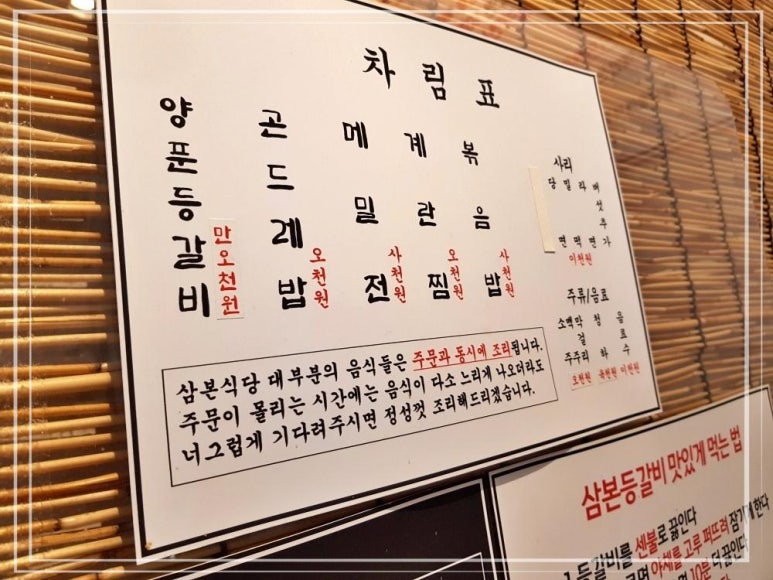 차림표
양푼등갈비 만오천원
곤드레밥 오천원
메밀전 사천원
계란찜 오천원
볶음밥 사천원
사리
당면
밀떡
라면
버섯추가
이천원
주류/음료
소주
맥주
막걸리
청하
음료수
오천원 육천원 이천원
삼본식당 대부분의 음식들은 주문과 동시에 조리됩니다.
주문이 몰리는 시간에는 음식이 다소 느리게 나오더라도
너그럽게 기다려주시면 정성껏 조리해드리겠습니다.
삼본등갈비 맛있게 먹는 법
등갈비를 센불로 끓인다
야채를 고루 퍼뜨려 잠기게 한다
10분 더 끓인다